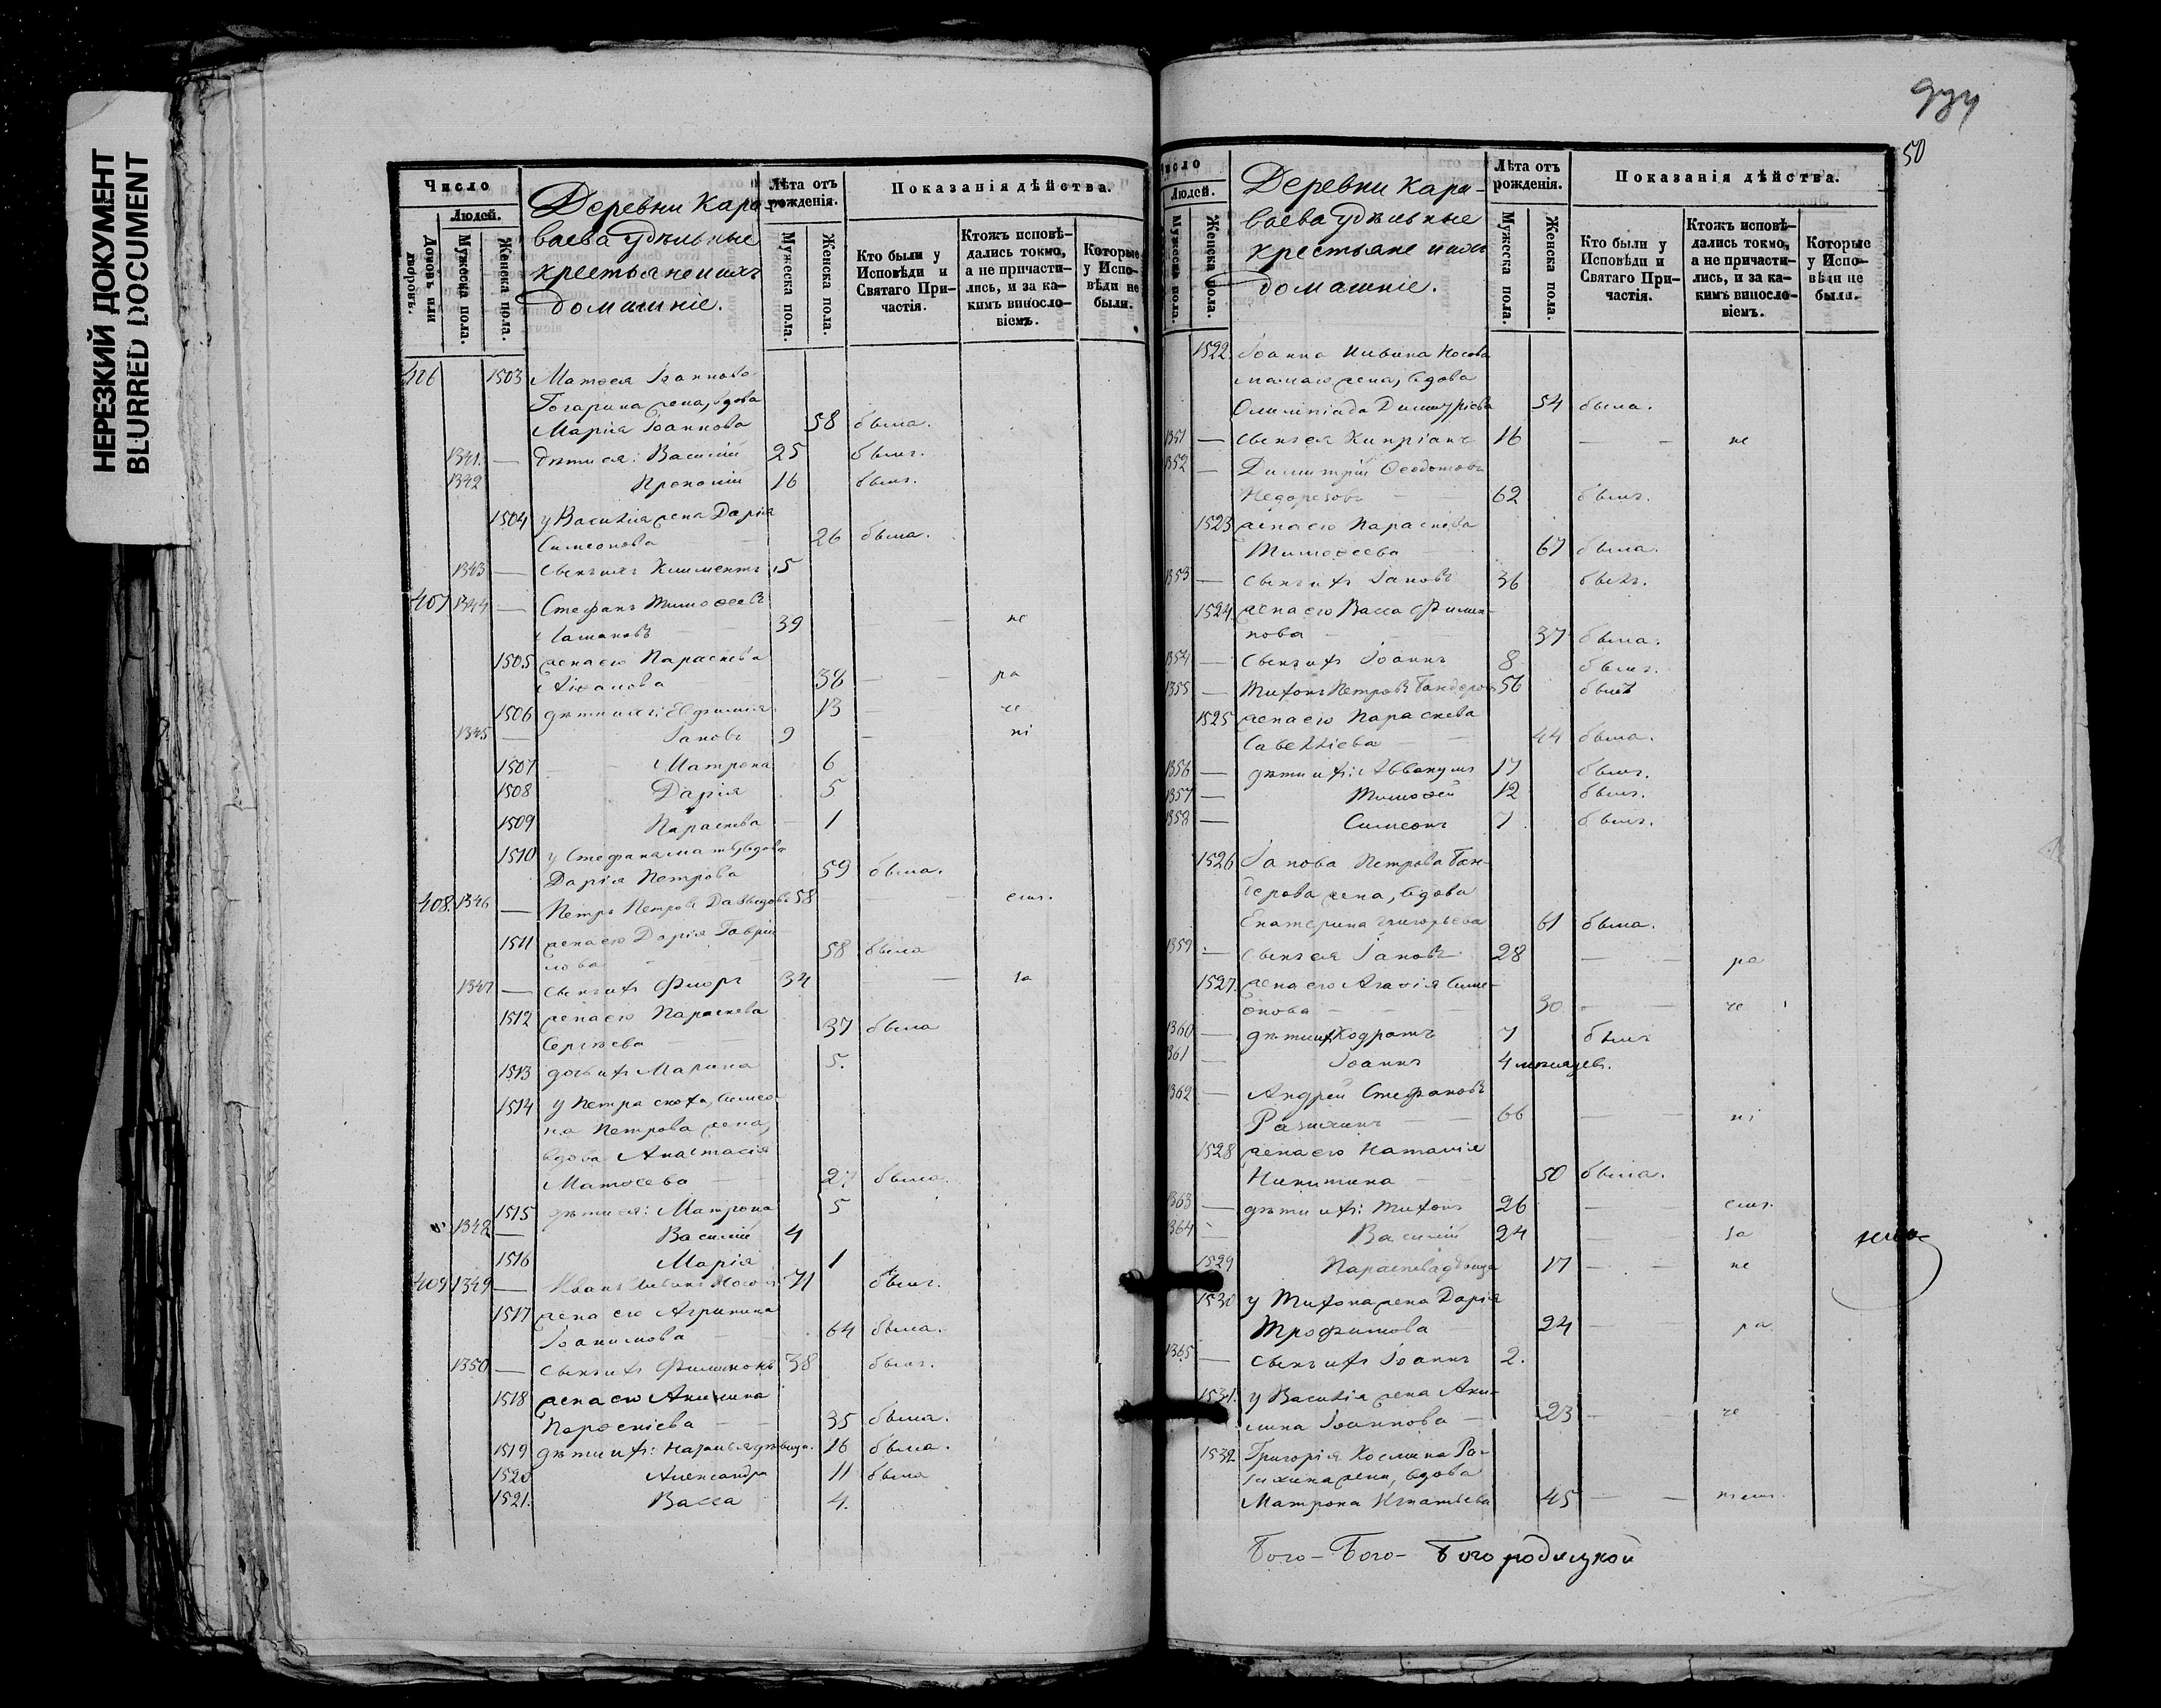 НЕРЕЗКИЙ ДОКУМЕНТ
BLURRED DOCUMENT
Число
Людей.
Домовъ или дворовъ.
Мужеска пола.
Женска пола.
Деревни Кара-
ваева удѣльные
крестьяне и ихъ
домашніе.
Лѣта отъ рожденія.
Мужеска пола.
Женска пола.
Показанія дѣйства.
Кто были у Исповѣди и Святаго При-частія.
Ктожъ исповѣ-дались токмо, а не причасти-лись, и за ка-кимъ винословіемъ.
Которые у Испо-вѣди не были.
406 1503 Матѳея Іоаннова
жена, вдова
Марія Іоаннова 58 была.
1341. — дѣти ея: Василій 25 былъ.
1342 Прокопій 16 былъ.
1504 у Василія жена Дарія
Симеонова 26 была.
1343 — сынъ ихъ Климентъ 5
407 1344 — Стефанъ Тимоѳеевъ
39 — не
1505 жена его Параскева
38 — ра
1506 дѣти ихъ: Евфимія 13 — че
1345 — Іаковъ 9 — ні
1507 Матрона 6
1508 Дарія 5
1509 Параскева 1
1510 у Стефана мать, вдова
Дарія Петрова 59 была.
408. 1346 — Петръ Петровъ Давыдовъ 58 — емъ.
1511 жена его Дарія Гаврі-
лова 58 была
1347 — сынъ ихъ Флоръ 34 — за
1512 жена его Параскева
Сергѣева 37 была
1513 дочь ихъ Марина 5.
1514 у Петра сноха, Симео-
на Петрова жена,
вдова Анастасія
Матѳеева 27 была.
1515 дѣти ея: Матрона 5
1348 — Василій 4
1516 Марія 1
409 1349 — Иванъ 71 былъ.
1517 жена его Агрипина
Іоакимова 64 была.
1350 — сынъ ихъ Филимонъ 38 былъ.
1518 жена его Акилина
35 была.
1519 дѣти ихъ: Наталья дѣвица. 16 была.
1520 Александра 11 была
1521. Васса 4.
974
50
Число
Людей.
Мужеска пола.
Женска пола.
Деревни Кара-
ваева удѣльные
крестьяне и ихъ
домашніе.
Лѣта отъ рожденія.
Мужеска пола.
Женска пола.
Показанія дѣйства.
Кто были у Исповѣди и Святаго При-частія.
Ктожъ исповѣ-дались токмо, а не причасти-лись, и за ка-кимъ винословіемъ.
Которые у Испо-вѣди не были.
1522. Іоанна Носова
жена, вдова
Олимпіада Димитріева 54 была.
1351 — сынъ ея Кипріанъ 16 — — не
1352 — Димитрій Ѳеодотовъ
Недорезовъ 62 былъ.
1523 жена его Параскева
Тимоѳеева 67 была.
1353 — сынъ ихъ Іаковъ 36 былъ.
1524. жена его Васса Филип-
пова 37 была.
1354 — сынъ ихъ Іоаннъ 8 былъ.
1355 — Тихонъ Петровъ 56 былъ
1525 жена его Параскева
Савелліева 44 была.
1356 — дѣти ихъ: Аввакумъ 17 былъ.
1357 — Тимоѳей 12 былъ.
1358 — Симеонъ 7 былъ.
1526 Іакова Петрова
жена, вдова
Екатерина Григорьева 61 была.
1359 — сынъ ея Іаковъ 28 — — ра
1527. жена его Агаѳія Симе-
онова 30 — — че
1360 — дѣти ихъ Кодратъ 7 былъ
1361 — Іоаннъ 4 мѣсяцевъ.
1362 — Андрей Стефановъ
66 — — ні
1528 жена его Наталія
Никитина 50 была.
1363 — дѣти ихъ: Тихонъ 26 — — емъ.
1364 — Василій 24 — — за
1529 Параскева дѣвица 17 — — не
1530 у Тихона жена Дарія
Трофимова 24 — — ра
1365 — сынъ ихъ Іоаннъ 2.
1531. у Василія жена Аки-
лина Іоаннова 23 — — че
1532 Григорія Космина Ра-
жена, вдова
Матрона Игнатьева 45 — —
Бого- Бого- Богородицкой